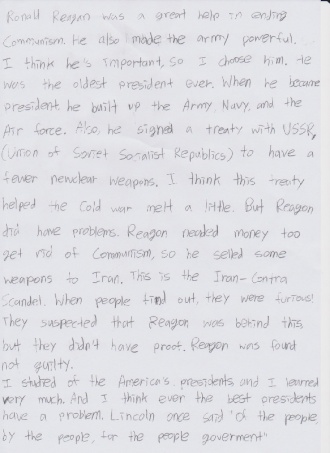 Ronald Reagan was a great help in ending
Communism. He also made the army powerful.
I think he's important, so I choose him. He
was the oldest president ever. When he became
president he built up the Army Navy, and the
Air force. Also, he signed a treaty with USSR,
(Union of Soviet Socialist Republics) to have a
fewer newclear weapons. I think this treaty
helped the Cold war melt a little. But Reagan
did have problems. Reagan needed money too
get rid of Communism, so he selled some
weapons to Iran. This is the Iran-Contra
Scandel. When people find out, they were furious!
They suspected that Reagan was behind this,
but they didn't have proof. Reagan was found
not guilty.
I studed of the America's presidents, and I learned
very much. And I think ever the best presidents
have a problem. Lincoln once said "Of the people,
by the people, for the people goverment"